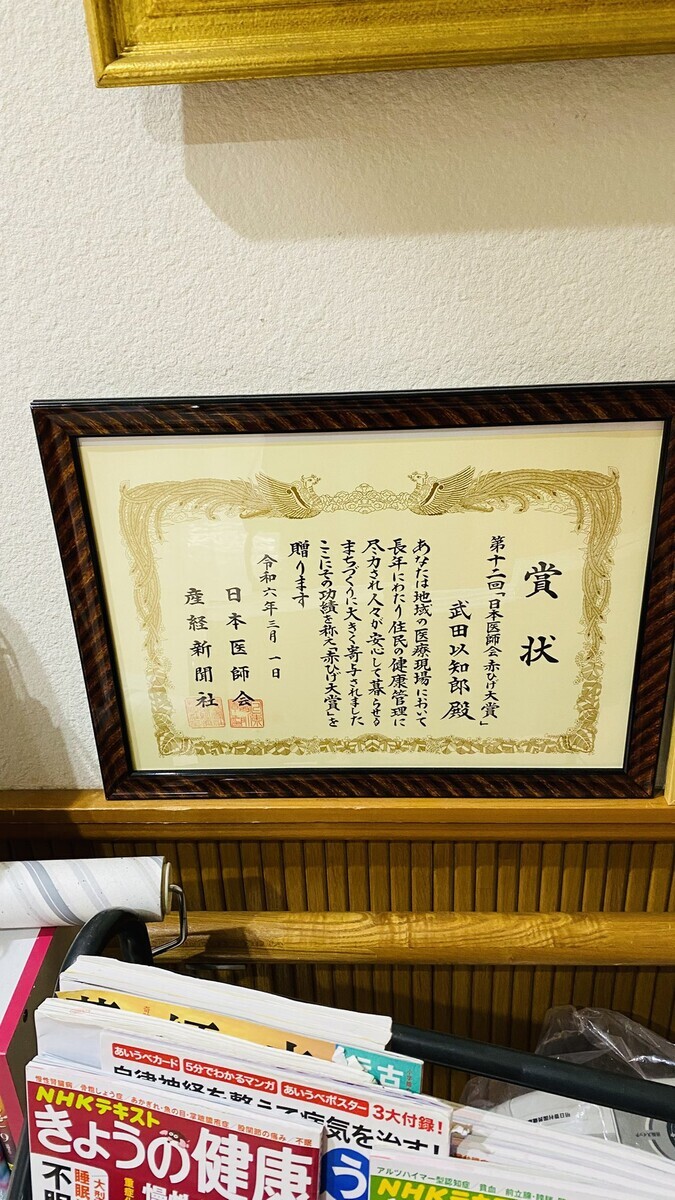 賞状
第十二回「日本医師会 赤ひげ大賞」
武田以知郎 殿
あなたは地域の医療現場において
長年にわたり住民の健康管理に
尽力され人々が安心して暮らせる
まちづくりに大きく寄与されました
ここにその功績を称え「赤ひげ大賞」を
贈ります
令和六年三月一日
日本医師会
産経新聞社
あいうべカード
5分でわかるマンガ
あいうべポスター
3大付録!
自律神経を整えて病気を治す!
慢性腎臓病
NHKテキスト
きょうの健康
股関節の痛み/不眠
不眠
睡眠
アルツハイマー型認知症/貧血/前立腺
NHKテキスト